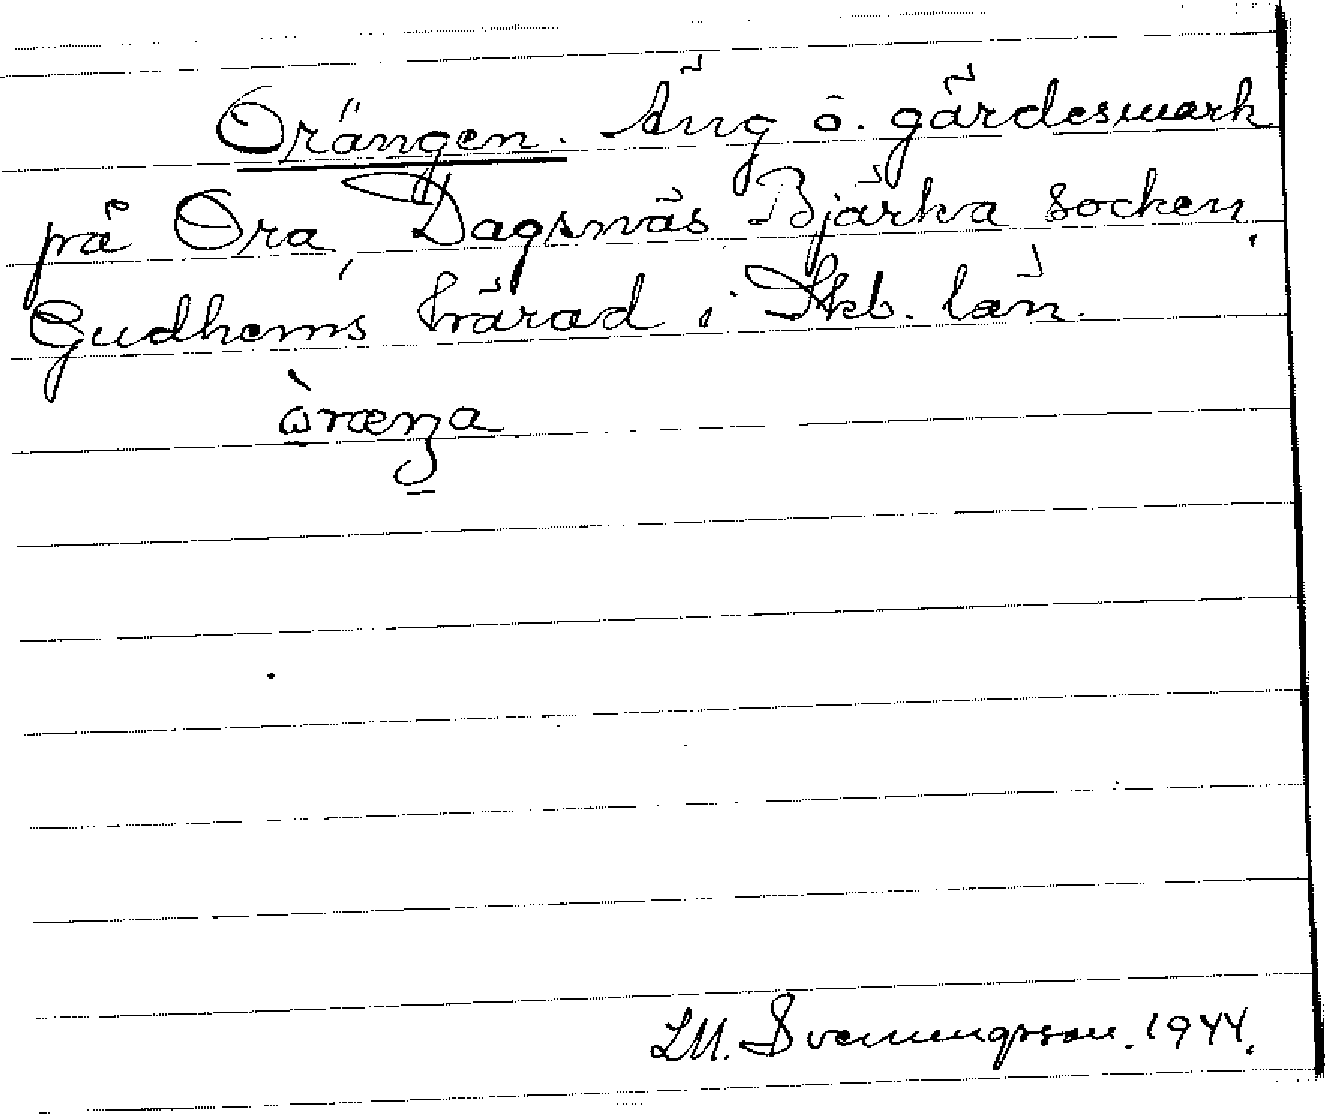 Orängen. Äng o. gärdesmark
på Ora, Dagsnäs Bjärka socken,
Gudhems härad i Skb. län.
ὼræŋa
L.M. Svenungsson. 1944.